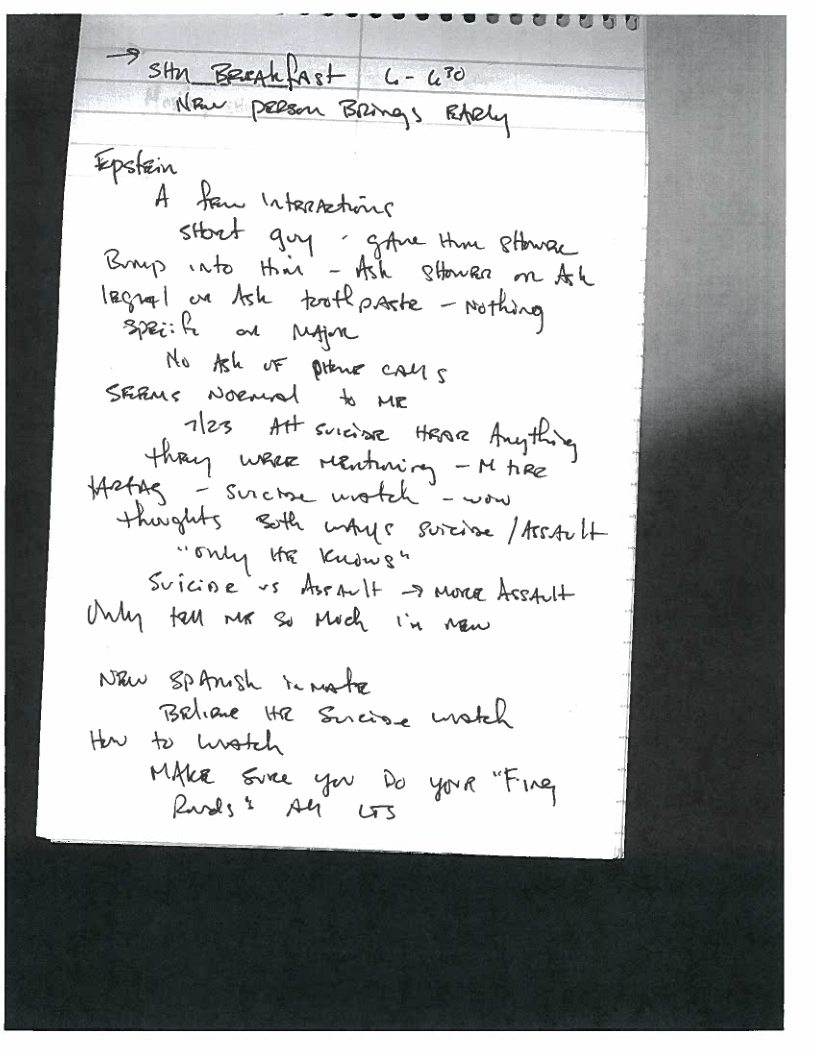 → SHU BREAKfASt 6 - 630
NEW PERSON BRINGS EARly
Epstein
A few INtERActions
Short guy - gAve Him SHowER
Bump into Him - Ask SHOWER or Ask
legal or Ask toothpAste - Nothing
Specific or MAjor
No Ask of pHone CAlls
SEEMS NORMAl to ME
7/23 Att SuiciDE HEAR Anything
they WERE MEntioning -
- SuiciDE wAtch - wow
thoughts Both wAys SuiciDE / AssAult
"only HE Knows"
SuiciDE vs AssAult → MORE AssAult
Only tell ME So Much i'm new
NEW SpAnish inmAte
BeliEve HE SuiciDe wAtch
How to wAtch
MAKE Sure you Do youR "Fing
Rounds" All LTS